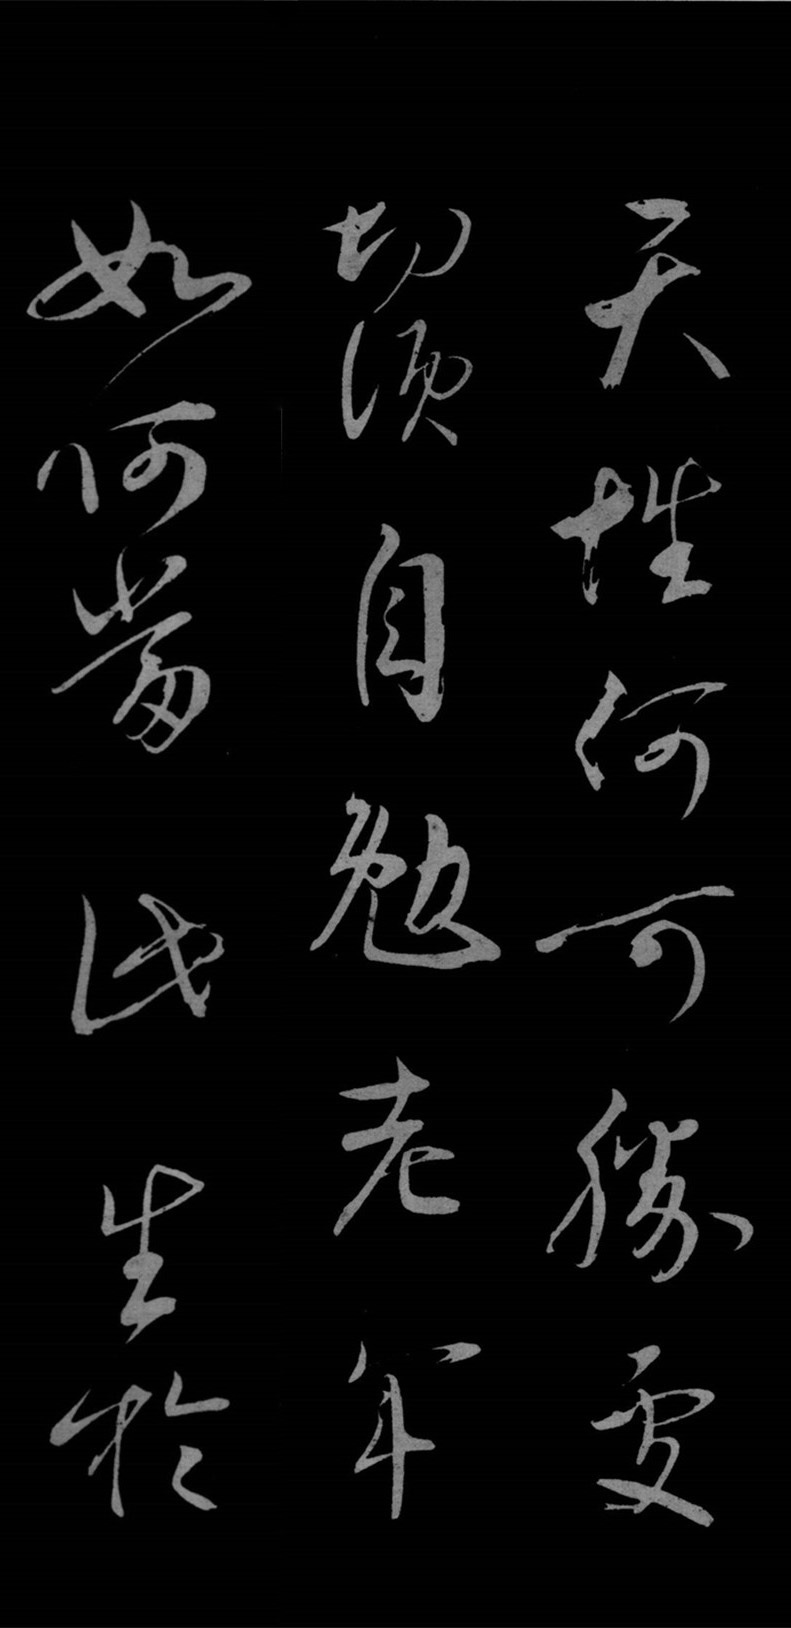 天性何可勝
切須自勉老年
如何當此生於